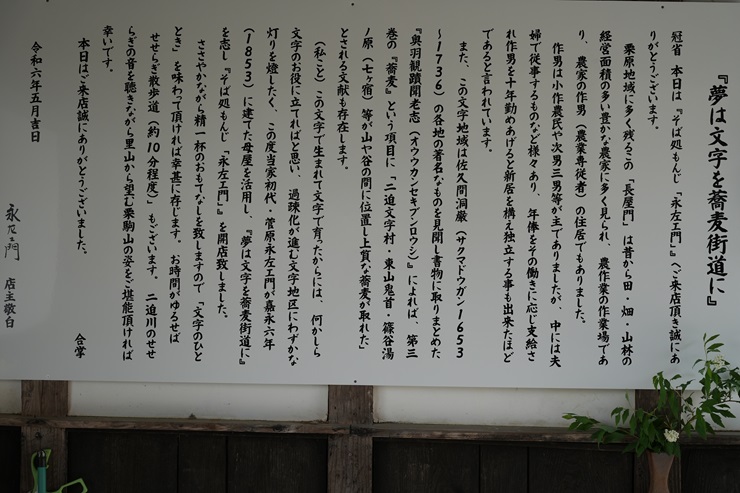 『夢は文字を蕎麦街道に』
冠省 本日は『そば処もんじ「永左エ門」』へご来店頂き誠にあ
りがとうございます。
栗原地域に多く残るこの「長屋門」は昔から田・畑・山林の
経営面積の多い豊かな農家に多く見られ、農作業の作業場であ
り、農家の作男（農業専従者）の住居でもありました。
作男は小作農民や次男三男等が主でありましたが、中には夫
婦で従事するものなど様々あり、年俸をその働きに応じ支給さ
れ作男を十年勤めあげると新居を構え独立する事も出来たほど
であると言われています。
また、この文字地域は佐久間洞巌（サクマドウガン１６５３
～１７３６）の各地の著名なものを見聞し書物に取りまとめた
『奥羽観蹟聞老志（オウウカンセキブンロウシ）』によれば、第三
巻の『蕎麦』という項目に「二迫文字村・東山鬼首・篠谷湯
ノ原（七ヶ宿）等が山や谷の間に位置し上質な蕎麦が取れた
とされる文献も存在します。
（私こと）この文字で生まれて文字で育ったからには、何かしら
文字のお役に立てればと思い、過疎化が進む文字地区にわずかな
灯りを燈したく、この度当家初代・菅原永左エ門が嘉永六年
（１８５３）に建てた母屋を活用し、『夢は文字を蕎麦街道に』
を志し『そば処もんじ「永左エ門」』を開店致しました。
ささやかながら精一杯のおもてなしを致しますので「文字のひと
とき」を味わって頂ければ幸甚に存じます。お時間がゆるせば
せせらぎ散歩道（約１０分程度）もございます。二迫川のせせ
らぎの音を聴きながら里山から望む栗駒山の姿をご堪能頂ければ
幸いです。
本日はご来店誠にありがとうございました。 合掌
令和六年五月吉日
永左エ門 店主敬白